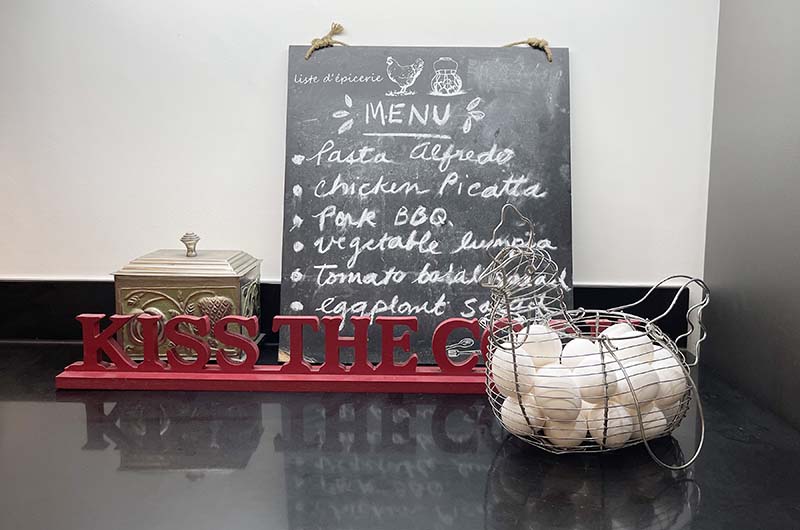 liste d'épicerie
MENU
• Pasta Alfredo
• Chicken Picatta
• Pork BBQ
• vegetable lumpia
• Tomato salad
• eggplant salad
KISS THE CO